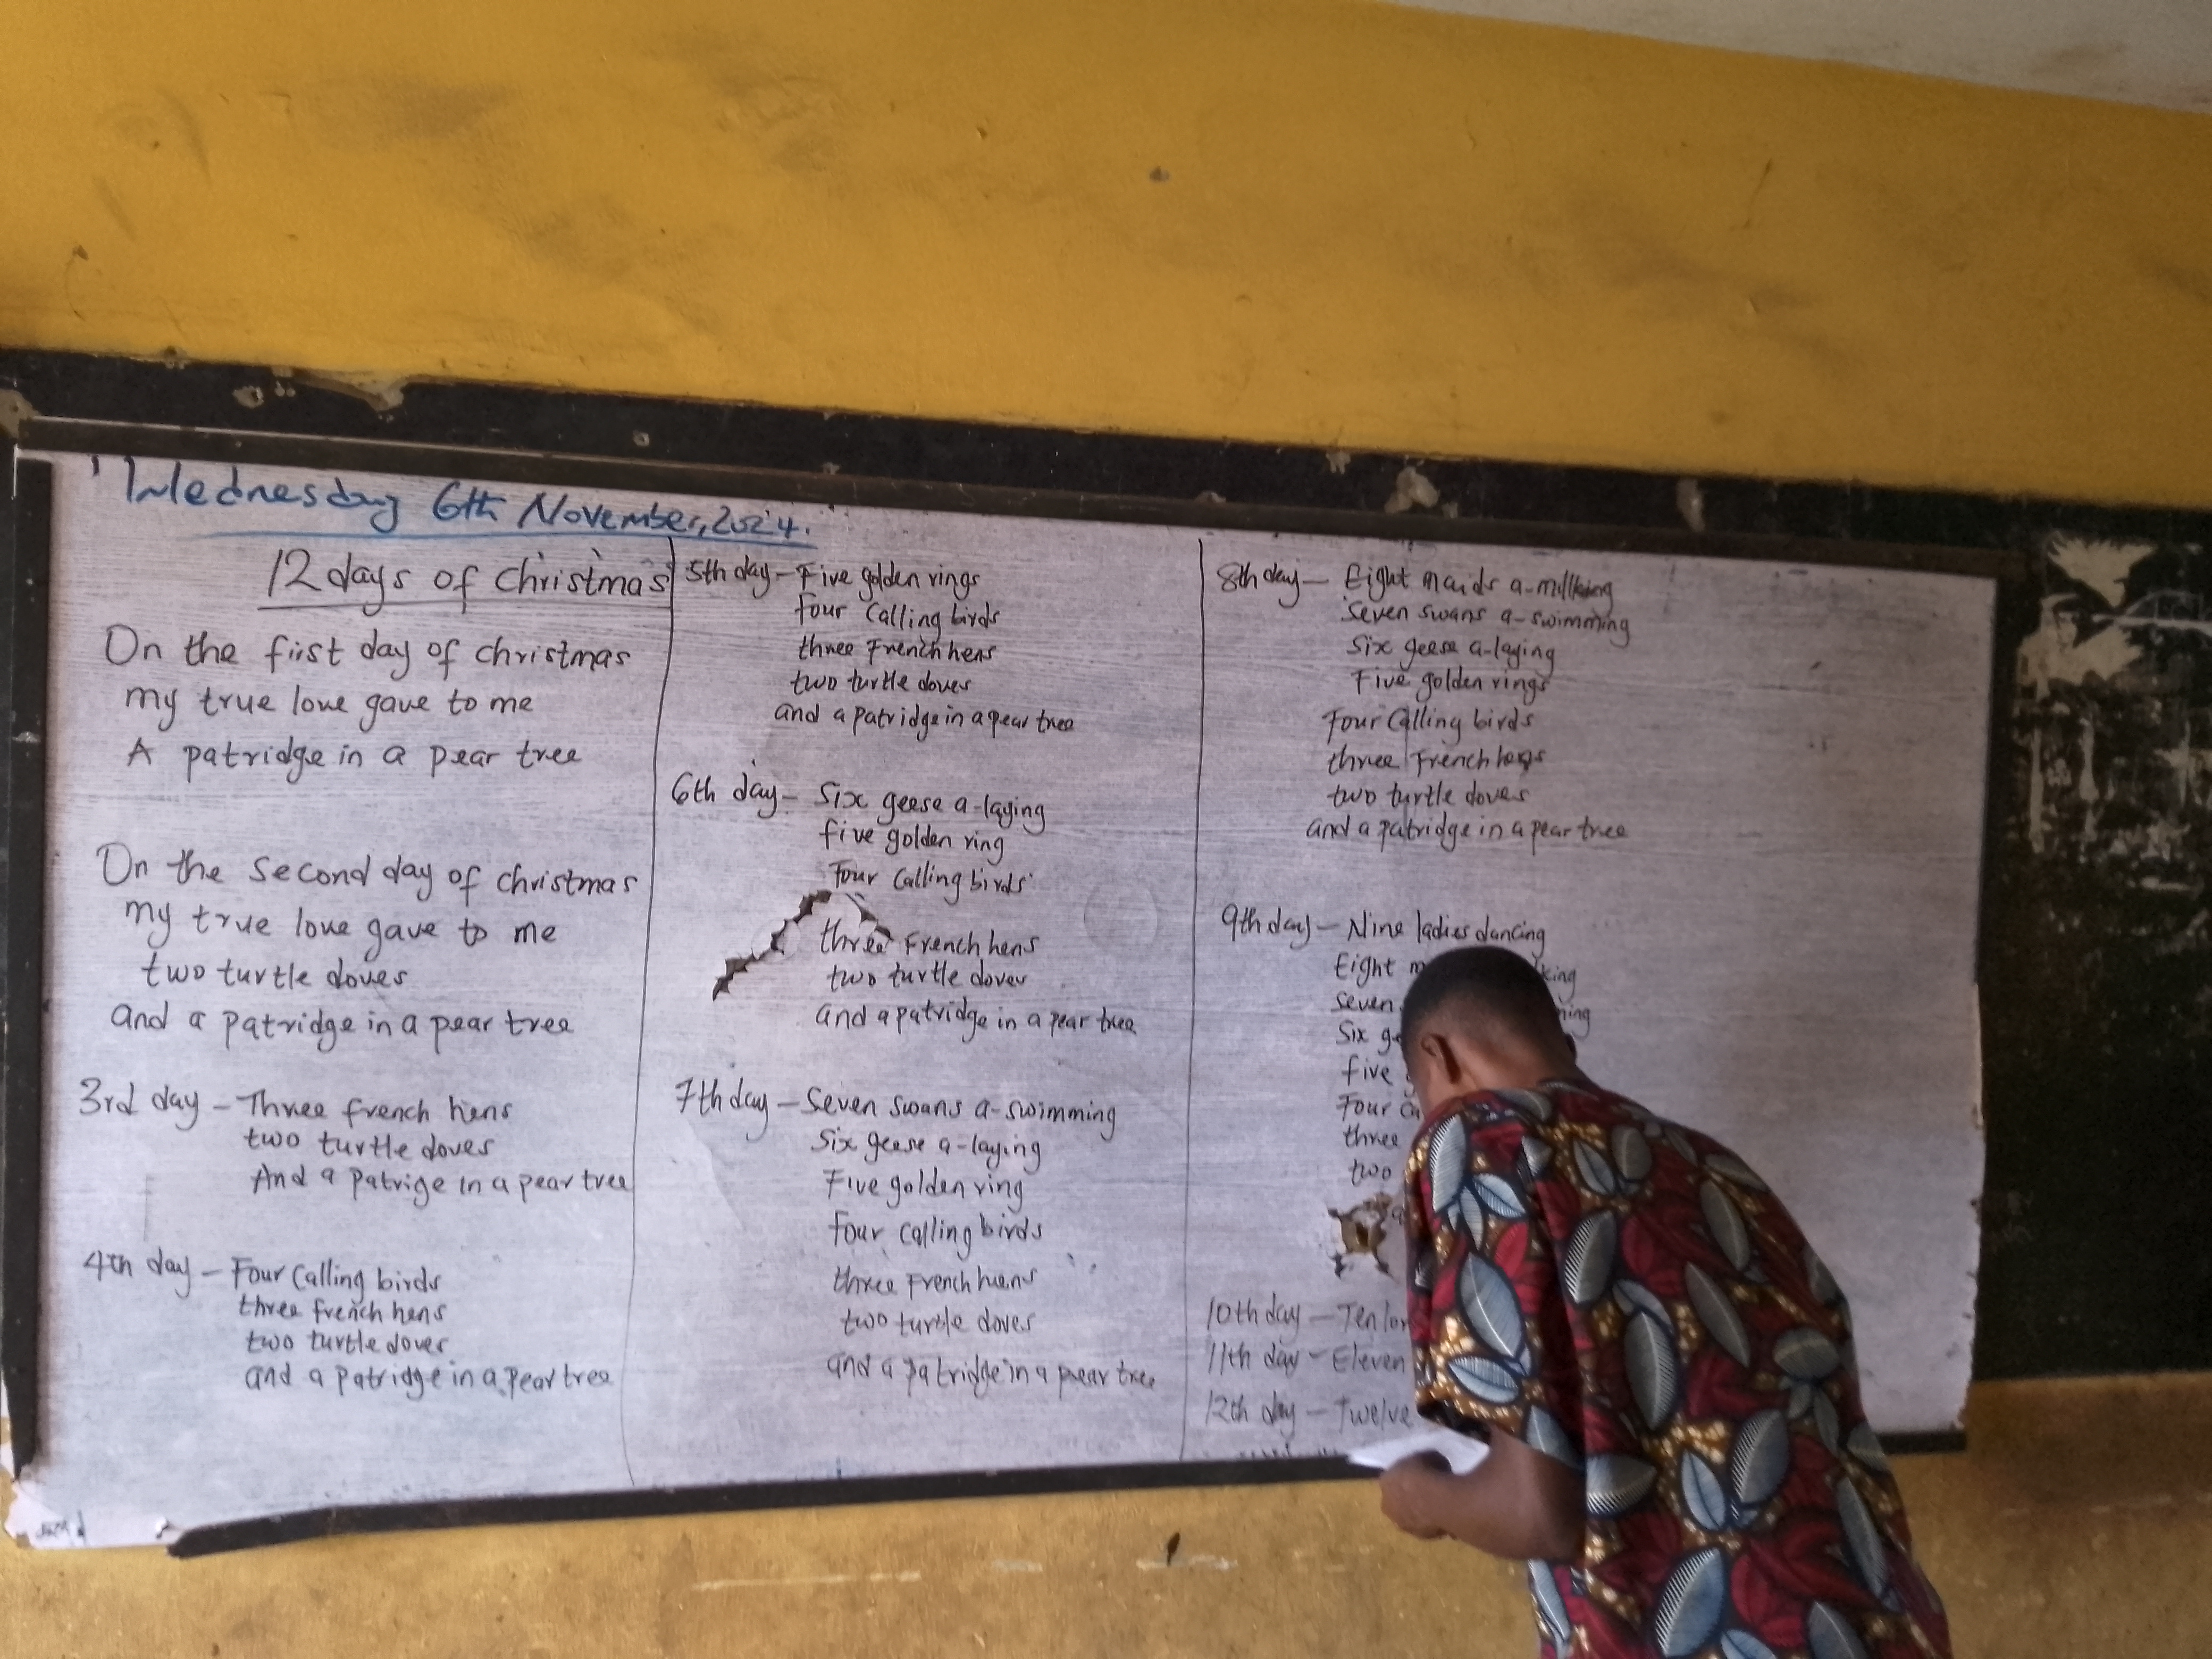 Wednesday 6th November, 2024.
12 days of christmas
On the first day of christmas
my true love gave to me
A patridge in a pear tree
On the second day of christmas
my true love gave to me
two turtle doves
and a patridge in a pear tree
3rd day - Three french hens
two turtle doves
And a patrige in a pear tree
4th day - Four calling birds
three french hens
two turtle doves
and a patridge in a pear tree
5th day - Five golden rings
four calling birds
three French hens
two turtle doves
and a patridge in a pear tree
6th day - Six geese a-laying
five golden ring
Four calling birds
three French hens
two turtle doves
and a patridge in a pear tree
7th day - Seven swans a-swimming
Six geese a-laying
Five golden ring
four calling birds
three French hens
two turtle doves
and a patridge in a pear tree
8th day - Eight maids a-milking
seven swans a-swimming
Six geese a-laying
Five golden rings
Four calling birds
three French hens
two turtle doves
and a patridge in a pear tree
9th day - Nine ladies dancing
Eight
seven
Six
five
Four
three
two
10th day - Ten
11th day - Eleven
12th day - Twelve